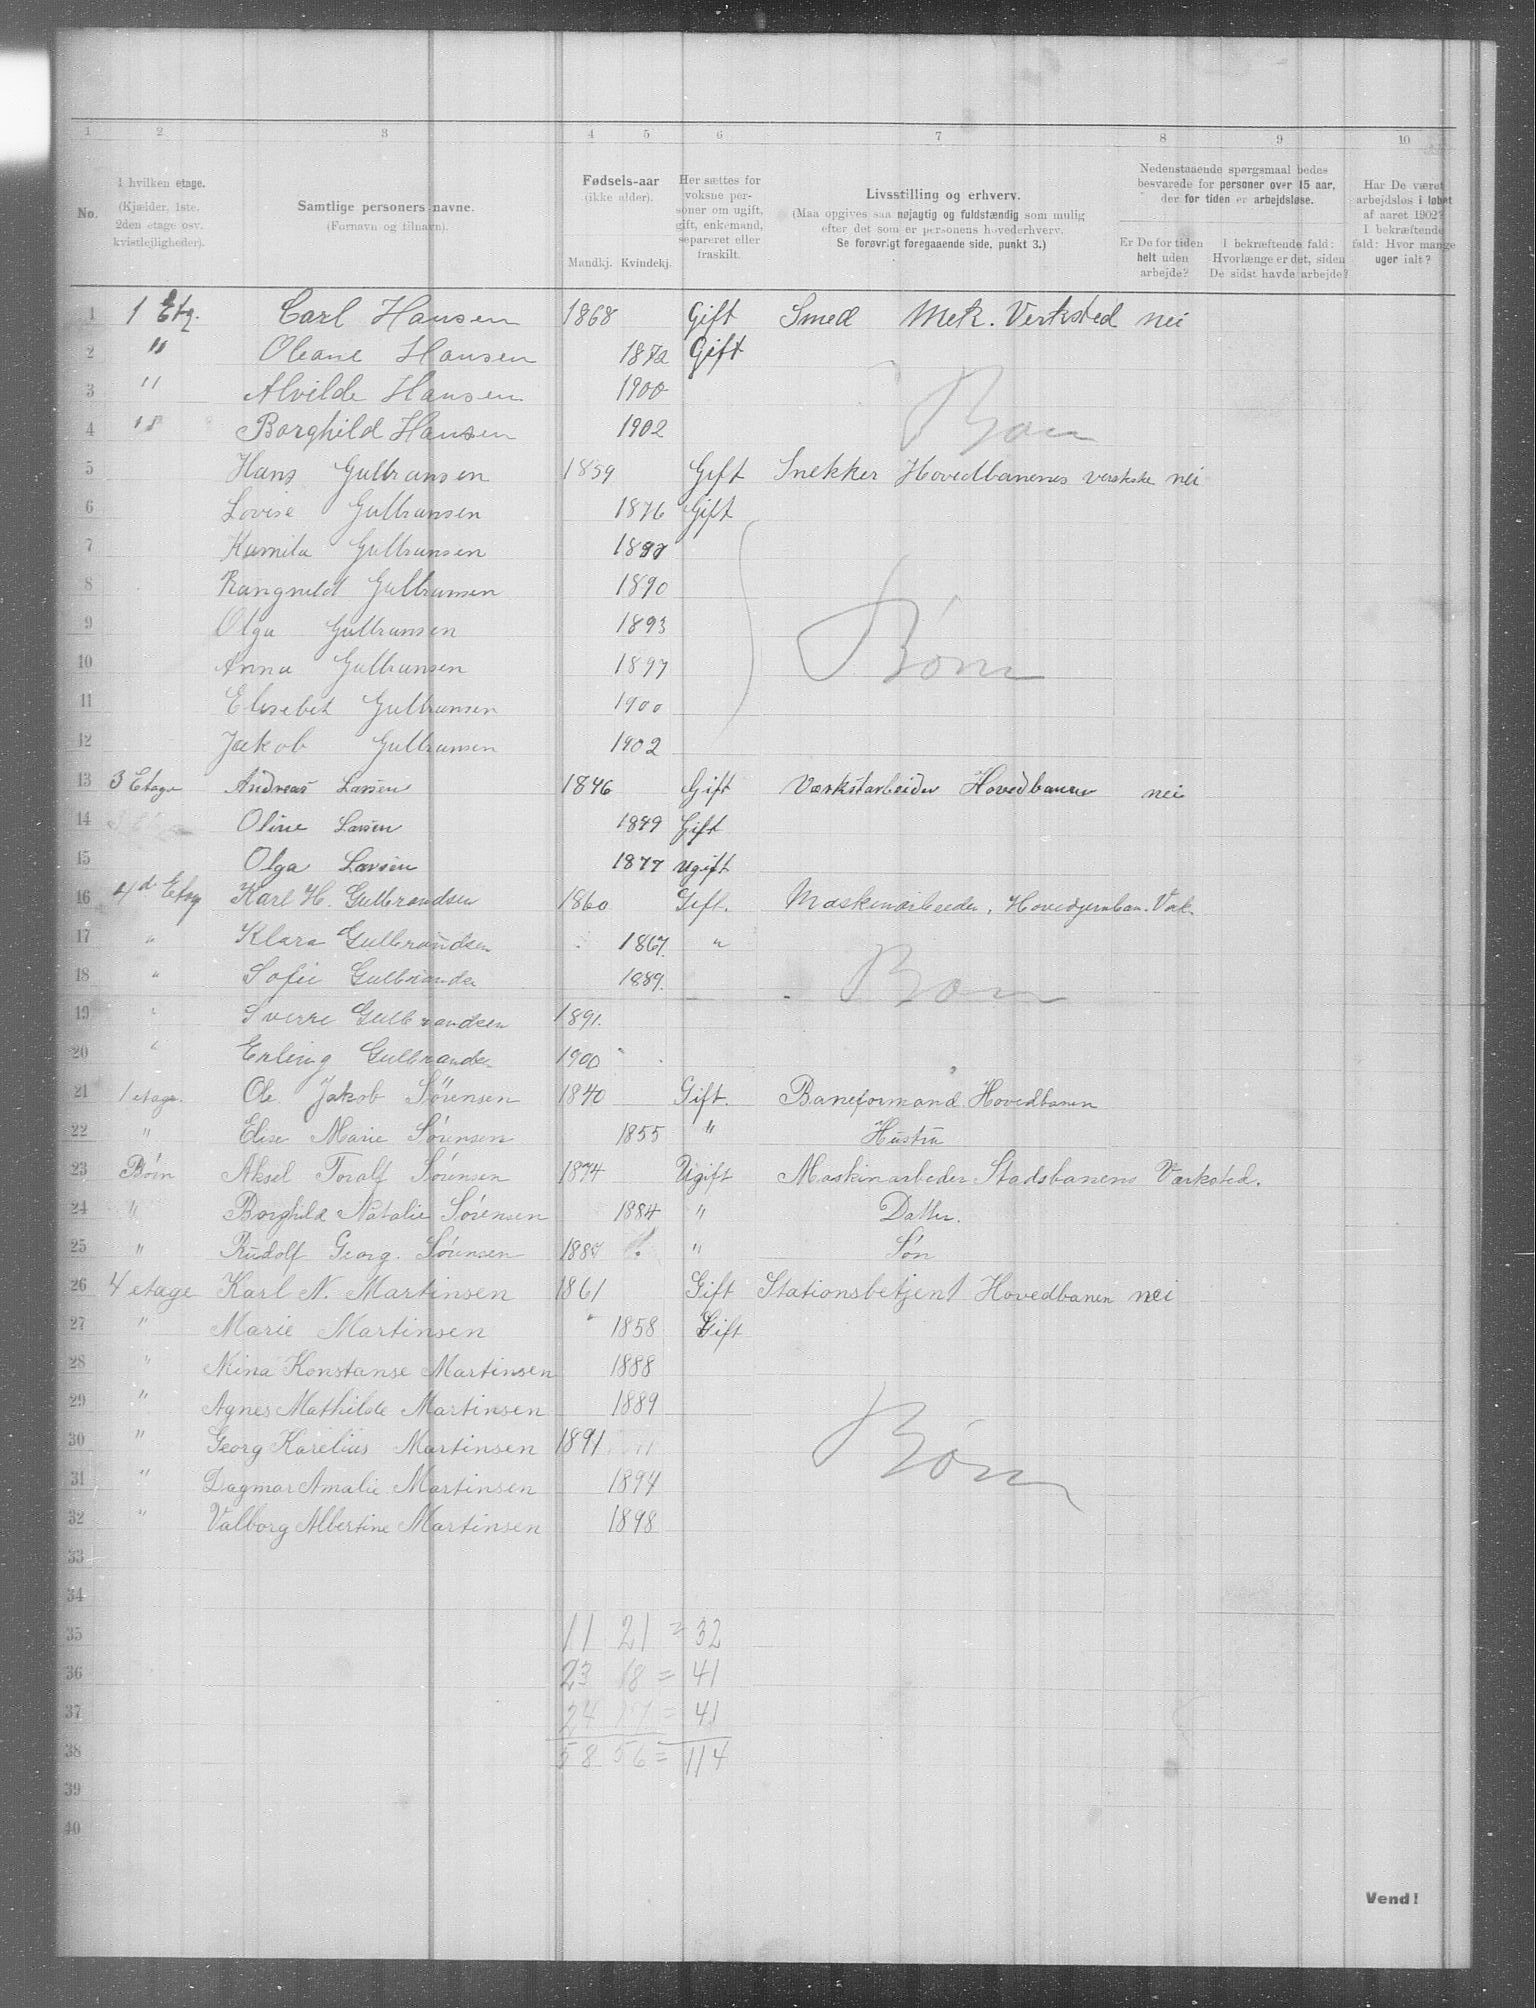 1 2 3 4 5 6 7 8 9 10
No. I hvilken etage. (Kjælder, 1ste, 2den etage osv. kvistlejligheder). Samtlige personers navne. (Fornavn og tilnavn). Fødsels-aar (ikke alder). Mandkj. Kvindekj. Her sættes for voksne personer om ugift, gift, enkemand, separeret eller fraskilt. Livsstilling og erhverv. (Maa opgives saa nøjagtig og fuldstændig som mulig efter det som er personens hovederhverv. Se forøvrigt foregaaende side, punkt 3.) Nedenstaaende spørgsmaal bedes besvarede for personer over 15 aar, der for tiden er arbejdsløse. Er De for tiden helt uden arbejde? I bekræftende fald: Hvorlænge er det, siden De sidst havde arbejde? Har De været arbejdsløs i løbet af aaret 1902? I bekræftende fald: Hvor mange uger ialt?
1 1 Etg. Carl Hansen 1868 Gift Smed Mek. Verksted nei
2 " Oleane Hansen 1872 Gift
3 " Alvilde Hansen 1900
4 " Borghild Hansen 1902 Børn
5 Hans Gulbransen 1859 Gift Snekker Hovedbanenes nei
6 Lovise Gulbransen 1876 Gift
7 Kamila Gulbransen
8 Gulbransen 1890
9 Olga Gulbransen 1893 Børn
10 Anna Gulbransen 1897
11 Elisebet Gulbransen 1900
12 Jakob Gulbransen 1902
13 3 Etage Andreas Larsen 1846 Gift Værkstarbeider Hovedbanen nei
14 Oline Larsen 1849 Gift
15 Olga Larsen 1877 Ugift
16 4d Etag Karl H. Gulbrandsen 1860 Gift. Maskinarbeider, Hovedjernban. Verk.
17 " Klara Gulbrandsen 1867. "
18 " Sofie Gulbrandsen 1889. Børn
19 " Sverre Gulbrandsen 1891.
20 " Erling Gulbrandsen 1900
21 1 etage. Ole Jakob Sørensen 1840 Gift. Baneformand Hovedbanen
22 " Elise Marie Sørensen 1855 " Hustru
23 Børn Aksel Toralf Sørensen 1874 Ugift Maskinarbeder Stadsbanens Værksted.
24 " Borghild Natalie Sørensen 1884 " Datter.
25 " Rudolf Georg. Sørensen 1887 " Søn
26 4 etage Karl N. Martinsen 1861 Gift Stationsbetjent Hovedbanen nei
27 " Marie Martinsen 1858 Gift
28 " Mina Konstanse Martinsen 1888
29 " Agnes Mathilde Martinsen 1889
30 " Georg Karelius Martinsen 1891 Børn
31 " Dagmar Amalie Martinsen 1894
32 " Valborg Albertine Martinsen 1898
33
34
35 11 21 = 32
36 23 18 = 41
37 24 17 = 41
38 58 56 = 114
39
40
Vend!